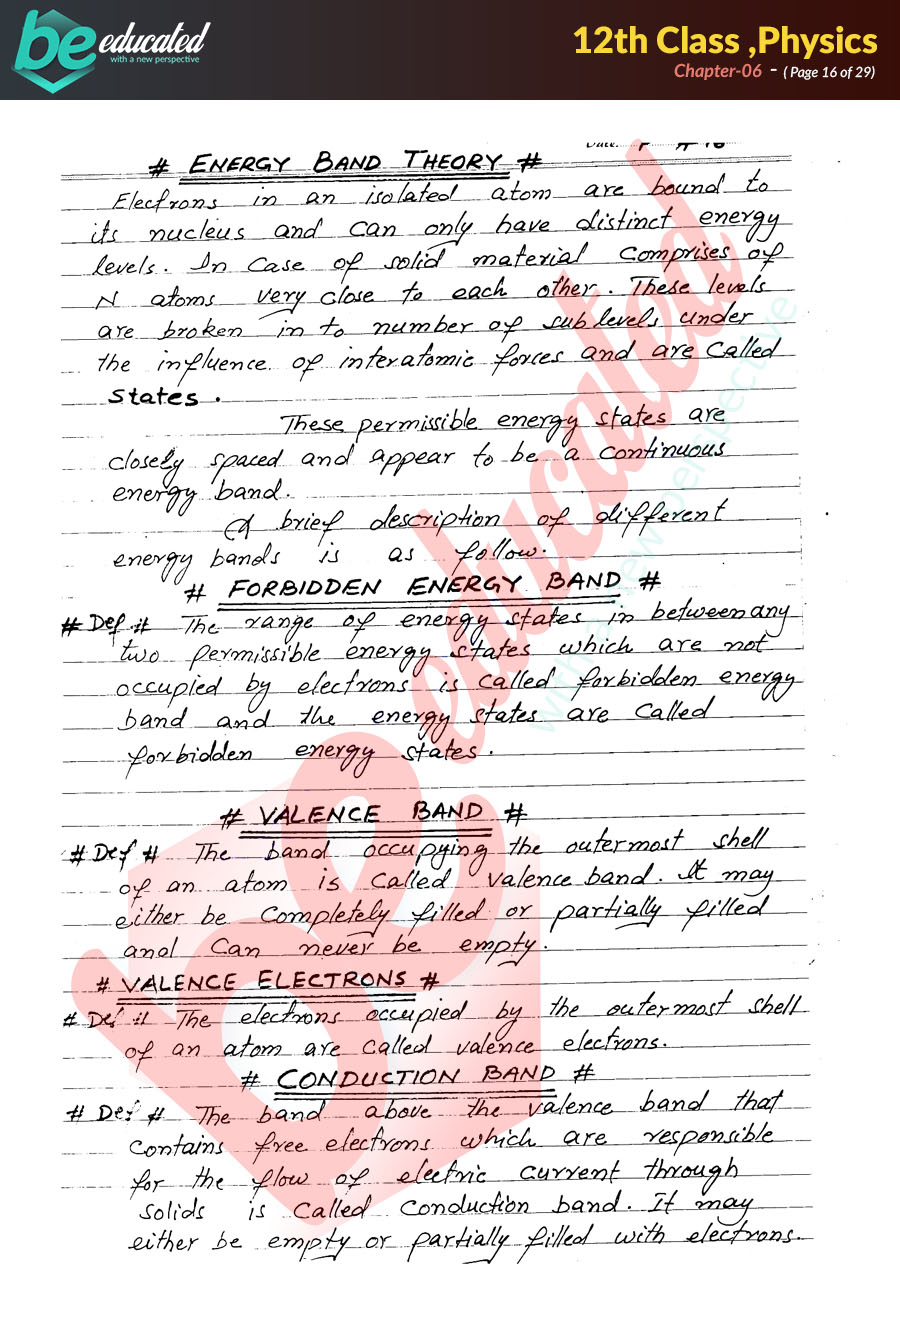 be educated
with a new perspective
12th Class ,Physics
Chapter-06 - ( Page 16 of 29)
# ENERGY BAND THEORY #
Electrons in an isolated atom are bound to
its nucleus and can only have distinct energy
levels. In case of solid material comprises of
N atoms very close to each other. These levels
are broken in to number of sub levels under
the influence of interatomic forces and are called
states.
These permissible energy states are
closely spaced and appear to be a continuous
energy band.
A brief description of different
energy bands is as follow.
# FORBIDDEN ENERGY BAND #
# Def # The range of energy states in between any
two permissible energy states which are not
occupied by electrons is called forbidden energy
band and the energy states are called
forbidden energy states.
# VALENCE BAND #
# Def # The band occupying the outermost shell
of an atom is called valence band. It may
either be completely filled or partially filled
and can never be empty.
# VALENCE ELECTRONS #
# Def # The electrons occupied by the outermost shell
of an atom are called valence electrons.
# CONDUCTION BAND #
# Def # The band above the valence band that
contains free electrons which are responsible
for the flow of electric current through
solids is called conduction band. It may
either be empty or partially filled with electrons.
be educated
with a new perspective